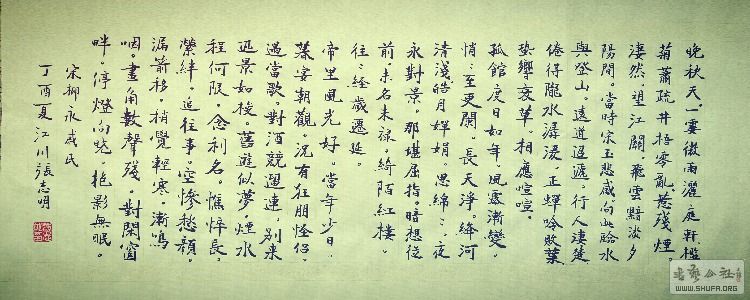 晚秋天。一霎微雨灑庭軒。檻
菊蕭疏。井梧零亂惹殘煙。
淒然。望江關。飛雲黯淡夕
陽閒。當時宋玉悲感。向此臨水
與登山。遠道迢遞。行人淒楚
倦聽隴水潺湲。正蟬吟敗葉
蛩響衰草。相應喧喧。
孤館度日如年。風露漸變。
悄悄至更闌。長天淨。絳河
清淺。皓月嬋娟。思綿綿。夜
永對景。那堪屈指。暗想從
前。未名未祿。綺陌紅樓。
往往經歲遷延。
帝里風光好。當年少日。
暮宴朝歡。況有狂朋怪侶。
遇當歌。對酒競留連。別來
迅景如梭。舊遊似夢。煙水
程何限。念利名。憔悴長
縈絆。追往事。空慘愁顏。
漏箭移。稍覺輕寒。漸嗚
咽。畫角數聲殘。對閒窗
畔。停燈向曉。抱影無眠。
宋柳永戚氏
丁酉夏江川張志明
书艺公社
WWW.SHUFA.ORG